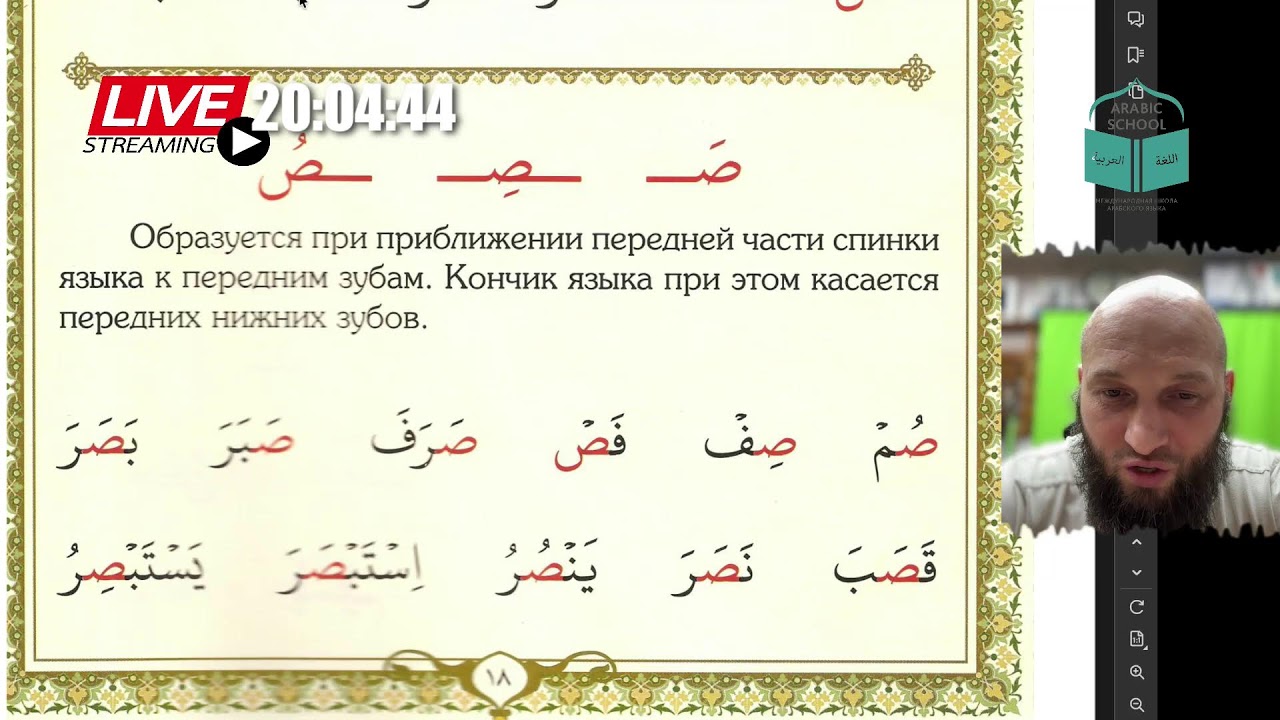 LIVE 20:04:44
STREAMING
ARABIC
SCHOOL
اللغة العربية
МЕЖДУНАРОДНАЯ ШКОЛА
АРАБСКОГО ЯЗЫКА
صَـ ـصِـ ـصُ
Образуется при приближении передней части спинки
языка к передним зубам. Кончик языка при этом касается
передних нижних зубов.
صُمْ صِفْ فَصْ صَرَفَ صَبَرَ بَصَرَ
قَصَبَ نَصَرَ يَنْصُرُ اِسْتَبْصَرَ يَسْتَبْصِرُ
١٨